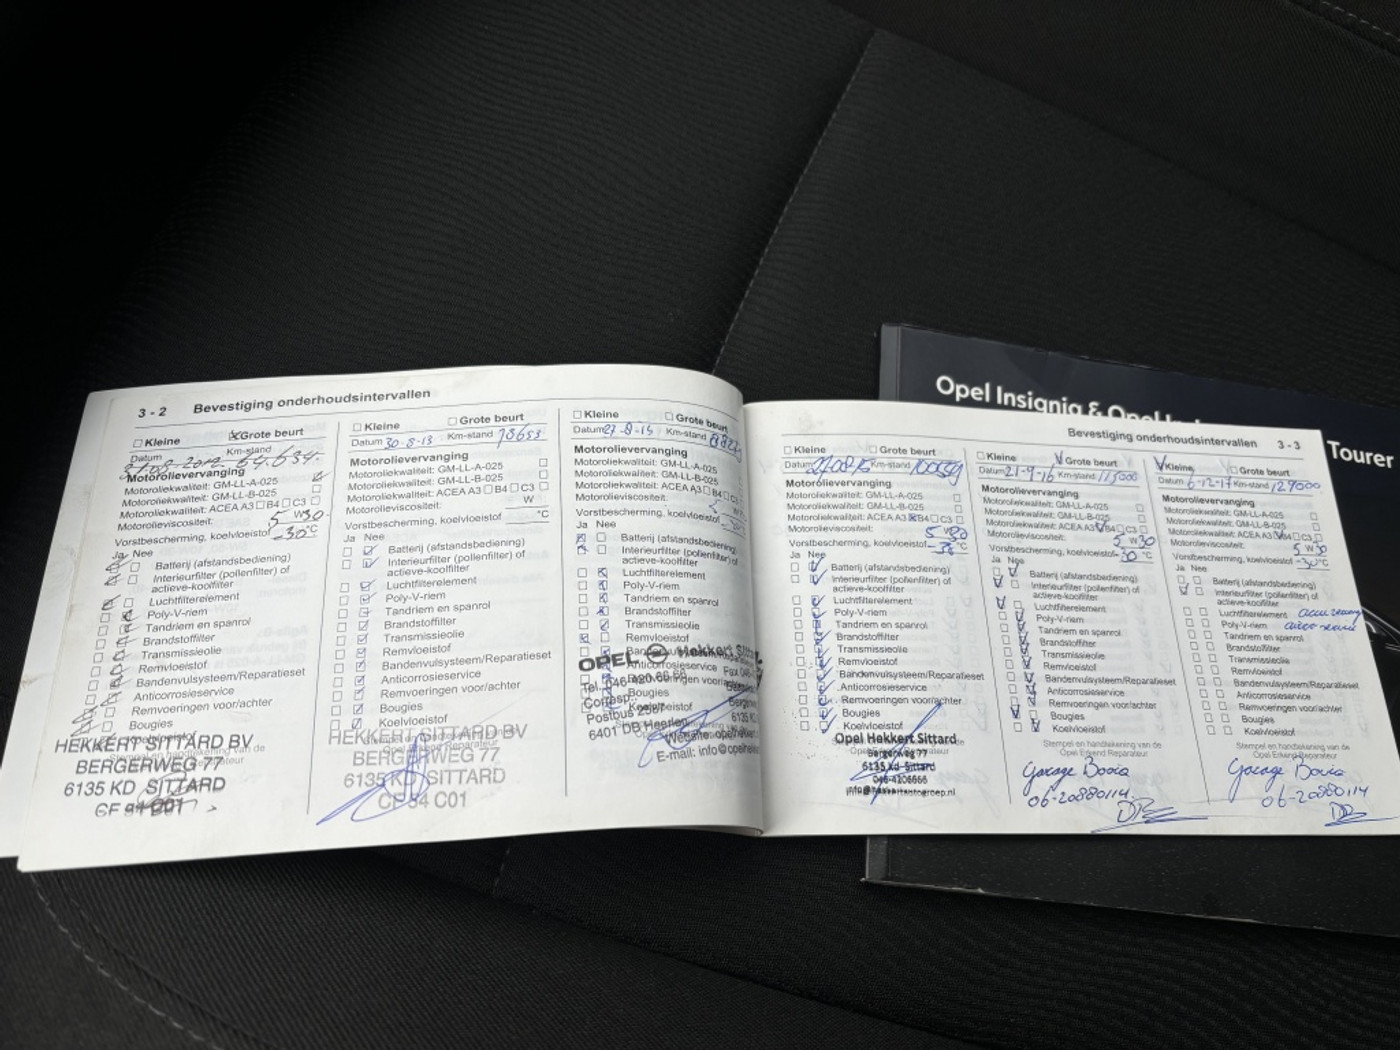 3 - 2 Bevestiging onderhoudsintervallen
Kleine Grote beurt
Datum Km-stand
31-08-2012 64.634.
Motorolievervanging
Motoroliekwaliteit: GM-LL-A-025
Motoroliekwaliteit: GM-LL-B-025
Motoroliekwaliteit: ACEA A3 B4 C3
Motorolieviscositeit: 5 W30
Vorstbescherming, koelvloeistof -30°C
Ja Nee
Batterij (afstandsbediening)
Interieurfilter (pollenfilter) of
actieve-koolfilter
Luchtfilterelement
Poly-V-riem
Tandriem en spanrol
Brandstoffilter
Transmissieolie
Remvloeistof
Bandenvulsysteem/Reparatieset
Anticorrosieservice
Remvoeringen voor/achter
Bougies
HEKKERT SITTARD BV
BERGERWEG 77
6135 KD SITTARD
CF 94 C01
Kleine Grote beurt
Datum 30-8-13 Km-stand 78653
Motorolievervanging
Motoroliekwaliteit: GM-LL-A-025
Motoroliekwaliteit: GM-LL-B-025
Motoroliekwaliteit: ACEA A3 B4 C3
Motorolieviscositeit: W
Vorstbescherming, koelvloeistof °C
Ja Nee
Batterij (afstandsbediening)
Interieurfilter (pollenfilter) of
actieve-koolfilter
Luchtfilterelement
Poly-V-riem
Tandriem en spanrol
Brandstoffilter
Transmissieolie
Remvloeistof
Bandenvulsysteem/Reparatieset
Anticorrosieservice
Remvoeringen voor/achter
Bougies
Koelvloeistof
HEKKERT SITTARD BV
BERGERWEG 77
6135 KD SITTARD
CF 94 C01
Kleine Grote beurt
Datum 27-8-15 Km-stand
Motorolievervanging
Motoroliekwaliteit: GM-LL-A-025
Motoroliekwaliteit: GM-LL-B-025
Motoroliekwaliteit: ACEA A3 B4 C3
Motorolieviscositeit: 5
Vorstbescherming, koelvloeistof
Ja Nee
Batterij (afstandsbediening)
Interieurfilter (pollenfilter) of
actieve-koolfilter
Luchtfilterelement
Poly-V-riem
Tandriem en spanrol
Brandstoffilter
Transmissieolie
Remvloeistof
OPEL Hekkert Sittard
Anticorrosieservice
Tel. 046-420 66 66
Bougies
Corresp.:
Postbus 2567
6401 DB Heerlen
Website:
E-mail:
Bevestiging onderhoudsintervallen 3 - 3
Kleine Grote beurt
Datum Km-stand 100559
Motorolievervanging
Motoroliekwaliteit: GM-LL-A-025
Motoroliekwaliteit: GM-LL-B-025
Motoroliekwaliteit: ACEA A3 B4 C3
Motorolieviscositeit: 5 W30
Vorstbescherming, koelvloeistof °C
Ja Nee
Batterij (afstandsbediening)
Interieurfilter (pollenfilter) of
actieve-koolfilter
Luchtfilterelement
Poly-V-riem
Tandriem en spanrol
Brandstoffilter
Transmissieolie
Remvloeistof
Bandenvulsysteem/Reparatieset
Anticorrosieservice
Remvoeringen voor/achter
Bougies
Koelvloeistof
Opel Hekkert Sittard
Bergerweg 77
6135 kd Sittard
046-4206666
Kleine V Grote beurt
Datum 21-9-16 Km-stand 115000
Motorolievervanging
Motoroliekwaliteit: GM-LL-A-025
Motoroliekwaliteit: GM-LL-B-025
Motoroliekwaliteit: ACEA A3 B4 C3
Motorolieviscositeit: 5 W 30
Vorstbescherming, koelvloeistof -30 °C
Ja Nee
Batterij (afstandsbediening)
Interieurfilter (pollenfilter) of
actieve-koolfilter
Luchtfilterelement
Poly-V-riem
Tandriem en spanrol
Brandstoffilter
Transmissieolie
Remvloeistof
Bandenvulsysteem/Reparatieset
Anticorrosieservice
Remvoeringen voor/achter
Bougies
Koelvloeistof
Stempel en handtekening van de
Opel Erkend Reparateur
Garage Bovia
06-20880114
V Kleine Grote beurt
Datum 6-12-17 Km-stand 129000
Motorolievervanging
Motoroliekwaliteit: GM-LL-A-025
Motoroliekwaliteit: GM-LL-B-025
Motoroliekwaliteit: ACEA A3 B4 C3
Motorolieviscositeit: 5 W 30
Vorstbescherming, koelvloeistof -30 °C
Ja Nee
Batterij (afstandsbediening)
Interieurfilter (pollenfilter) of
actieve-koolfilter
Luchtfilterelement
Poly-V-riem
Tandriem en spanrol
Brandstoffilter
Transmissieolie
Remvloeistof
Bandenvulsysteem/Reparatieset
Anticorrosieservice
Remvoeringen voor/achter
Bougies
Koelvloeistof
Stempel en handtekening van de
Opel Erkend Reparateur
Garage Bovia
06-20880114
Opel Insignia & Opel
Tourer